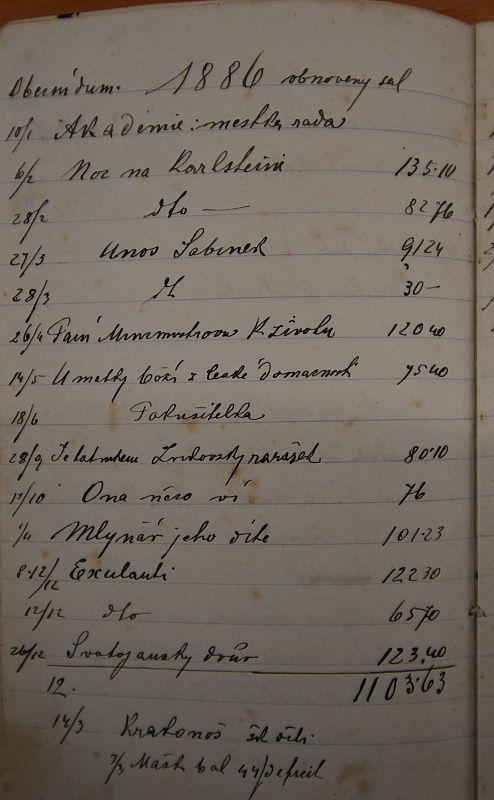 Obecní dům. 1886 obnoveny sal
10/1 Akademie: mestky rada
6/2 Noc na Karlsteini 135·10
28/2 dto — 82 76
27/3 Unos Sabinek 91 24
28/3 dt 30 –
26/4 Paní Mincmistrova K životu 120 40
14/5 U matky boží z české domacnosti 75 40
18/6 Pokušitelka
28/9 Telatnkem Zvikovsky rarašek 80·10
17/10 Ona něco ví 76
1/11 Mlynář jeho dite 101·23
8·12/12 Exulanti 122 30
12/12 dto 65 70
26/12 Svatojansky dvůr 123,40
12. 1103·63
14/3 Krakonoš šk děti
7/3 Mašk bal 44/deficit